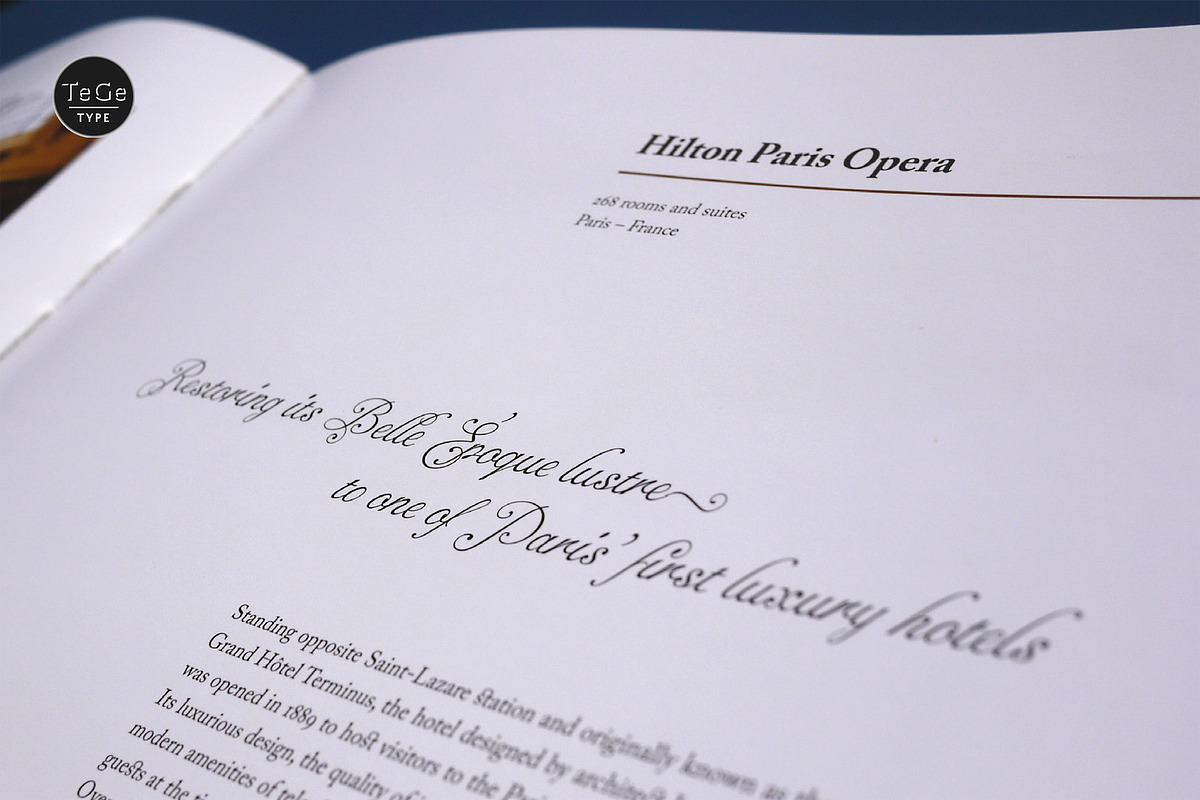 TeGe
TYPE
Hilton Paris Opera
268 rooms and suites
Paris – France
Restoring its Belle Époque lustre
to one of Paris’ first luxury hotels
Standing opposite Saint-Lazare station and originally known as the
Grand Hôtel Terminus, the hotel designed by architect
was opened in 1889 to host visitors to the
Its luxurious design, the quality of
modern amenities of
guests at the